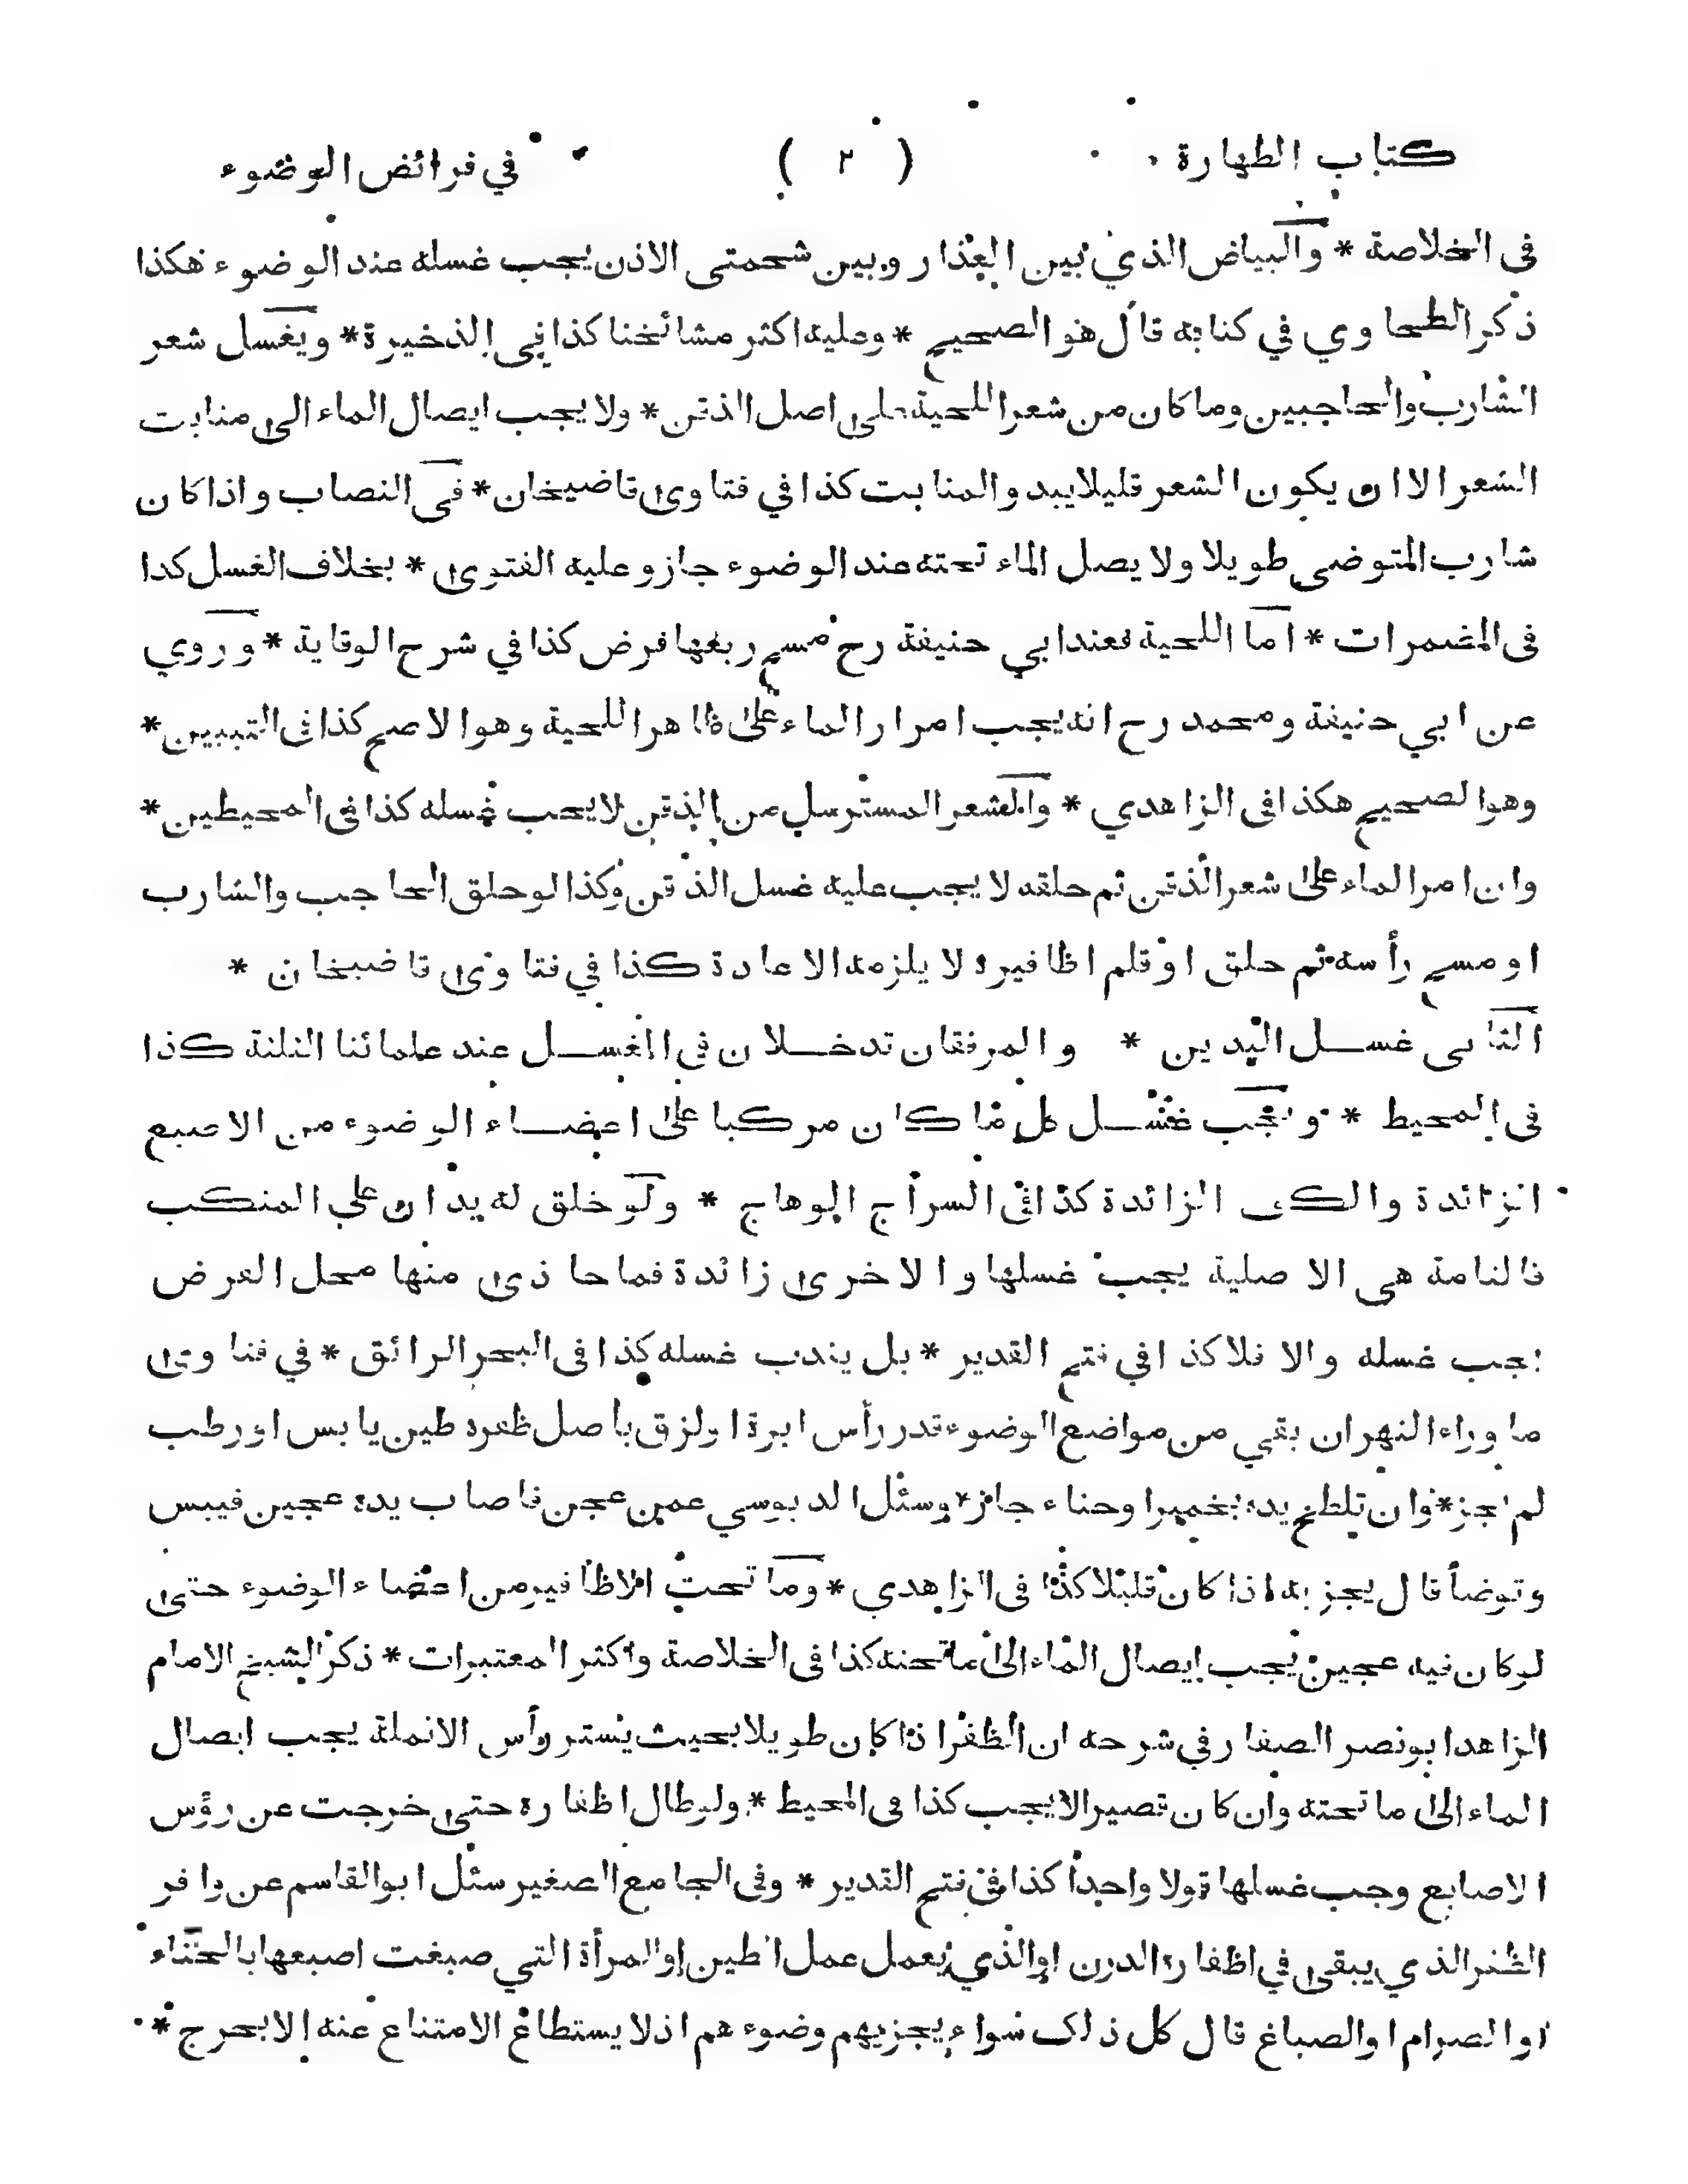 كتاب الطهارة ( ٢ ) في فرائض الوضوء
في الخلاصة * والبياض الذي بين العذار وبين شحمتى الاذن يجب غسله عند الوضوء هكذا
ذكر الطحاوي في كتابه قال هو الصحيح * وعليه اكثر مشائخنا كذا في الذخيرة * ويغسل شعر
الشارب والحاجبين وما كان من شعر اللحية على اصل الذقن * ولا يجب ايصال الماء الى منابت
الشعر الا ان يكون الشعر قليلا يبدو المنابت كذا في فتاوى قاضيخان * في النصاب واذا كان
شارب المتوضى طويلا ولا يصل الماء تحته عند الوضوء جاز وعليه الفتوى * بخلاف الغسل كذا
في المضمرات * اما اللحية فعند ابي حنيفة رح مسح ربعها فرض كذا في شرح الوقاية * وروي
عن ابي حنيفة ومحمد رح انه يجب امرار الماء على ظاهر اللحية وهو الاصح كذا في التبيين *
وهو الصحيح هكذا في الزاهدي * والشعر المسترسل من الذقن لا يجب غسله كذا في المحيطين *
وان امر الماء على شعر الذقن ثم حلقه لا يجب عليه غسل الذقن وكذا لو حلق الحاجب والشارب
او مسح رأسه ثم حلق او قلم اظافيره لا يلزمه الاعادة كذا في فتاوى قاضيخان *
الثانى غسل اليدين * والمرفقان تدخلان في الغسل عند علمائنا الثلثة كذا
في المحيط * ويجب غسل كل ما كان مركبا على اعضاء الوضوء من الاصبع
الزائدة والكف الزائدة كذا في السراج الوهاج * ولو خلق له يدان على المنكب
فالتامة هي الاصلية يجب غسلها والاخرى زائدة فما حاذى منها محل الفرض
يجب غسله والا فلا كذا في فتح القدير * بل يندب غسله كذا في البحر الرائق * في فتاوى
ما وراء النهر ان بقي من مواضع الوضوء قدر رأس ابرة او لزق بأصل ظفره طين يابس او رطب
لم يجز * وان تلطخ يده بخمير او حناء جاز * وسئل الدبوسي عمن عجن فاصاب يده عجين فيبس
وتوضأ قال يجزيه اذا كان قليلا كذا في الزاهدي * وما تحت الاظافير من اعضاء الوضوء حتى
لو كان فيه عجين يجب ايصال الماء الى ما تحته كذا في الخلاصة واكثر المعتبرات * ذكر الشيخ الامام
الزاهد ابو نصر الصفار في شرحه ان الظفر اذا كان طويلا بحيث يستر رأس الانملة يجب ايصال
الماء الى ما تحته وان كان قصيرا لا يجب كذا في المحيط * ولو طال اظفاره حتى خرجت عن رؤس
الاصابع وجب غسلها قولا واحدا كذا في فتح القدير * وفي الجامع الصغير سئل ابو القاسم عن وافر
الظفر الذي يبقى في اظفاره الدرن او الذي يعمل عمل الطين او المرأة التي صبغت اصبعها بالحناء
او الصرام او الصباغ قال كل ذلك سواء يجزيهم وضوءهم اذ لا يستطاع الامتناع عنه الا بحرج *